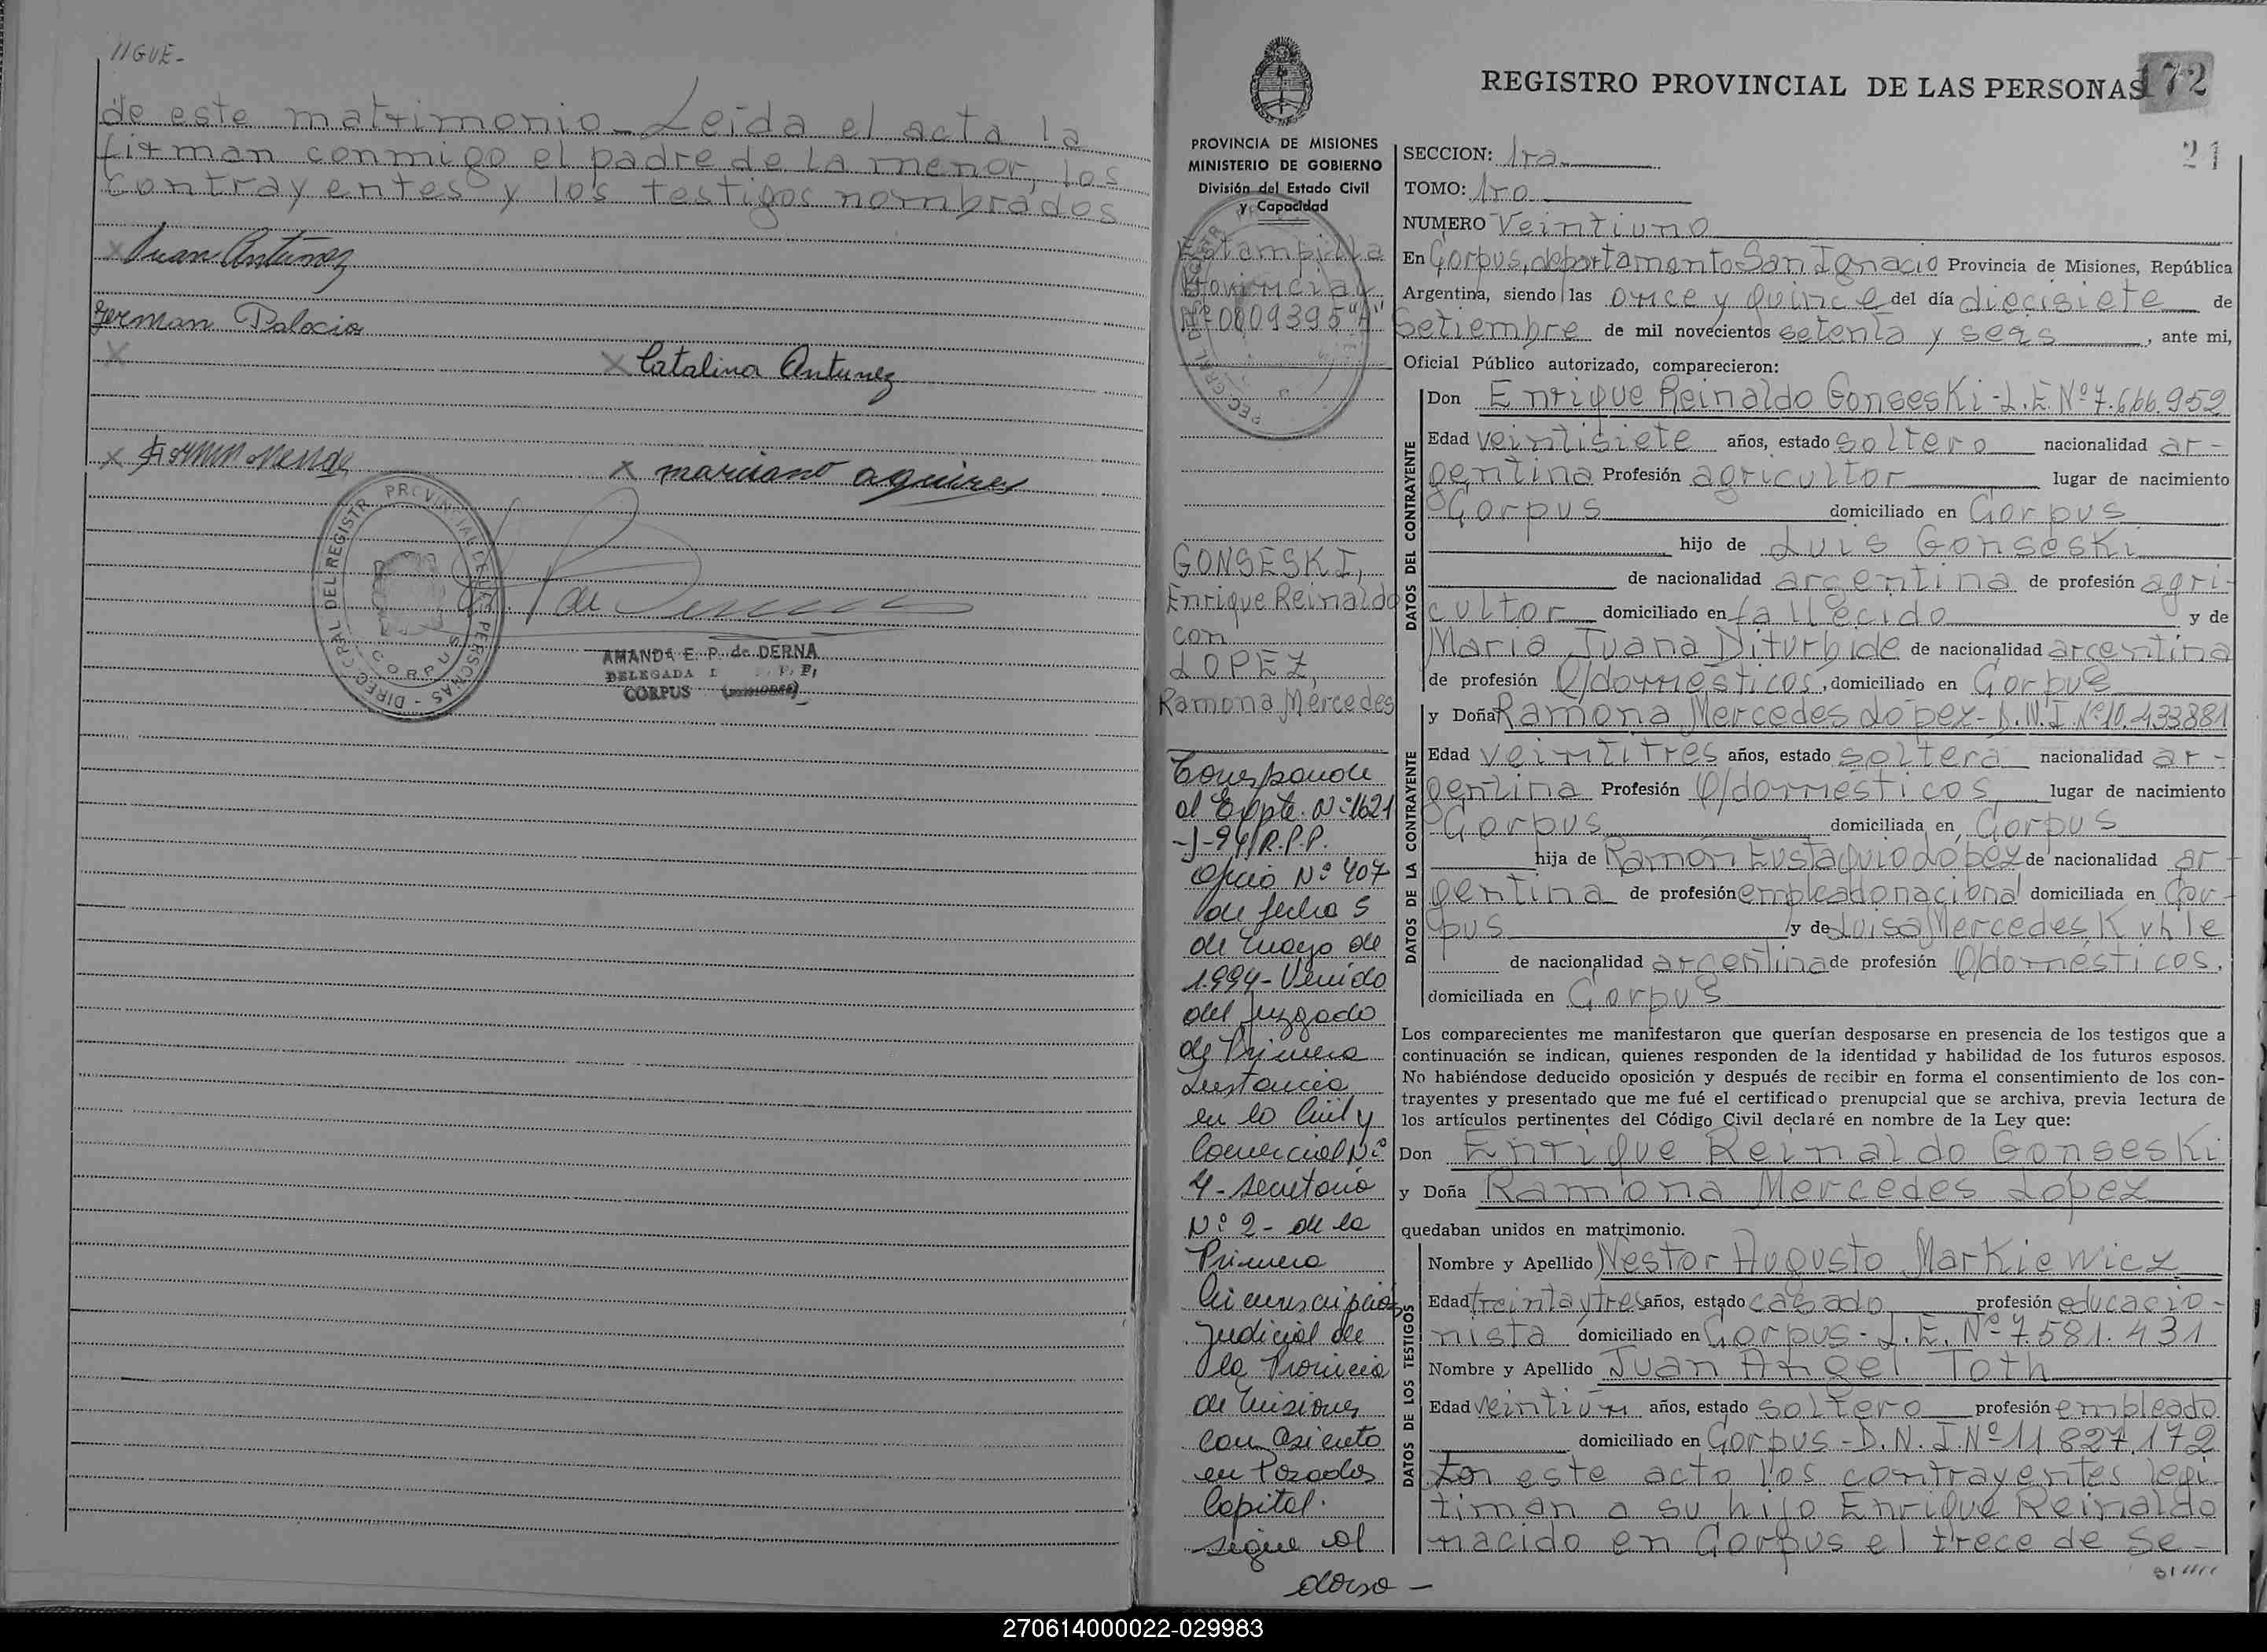 //GUE-
de este matrimonio. Leida el acta la
firman conmigo el padre de la menor, los
contrayentes y los testigos nombrados
x Juan Antunez
German Palacio
x
x Catalina Antunez
x Fermin
x marciano aguirre
DIREC. GRAL. DEL REGISTR. PROVINCIAL DE LAS PERSONAS - CORPUS
AMANDA E. P. de DERNA
DELEGADA
CORPUS (MISIONES)
REGISTRO PROVINCIAL DE LAS PERSONAS
172
21
PROVINCIA DE MISIONES
MINISTERIO DE GOBIERNO
División del Estado Civil
y Capacidad
Estampilla
Provincial
Nº 0009395 "A"
GONSESKI,
Enrique Reinaldo
con
LOPEZ,
Ramona Mercedes
Corresponde
al Expte. Nº 1621
-J-94/R.P.P.
Oficio Nº 407
de fecha 5
de mayo de
1.994- Venido
del Juzgado
de Primera
Instancia
en lo Civil y
Comercial Nº
4- secretaria
Nº 2- de la
Primera
Circunscripción
Judicial de
la Provincia
de Misiones
con asiento
en Posadas
Capital.
sigue al
dorso -
SECCION: 1ra.
TOMO: 1ro
NUMERO Veintiuno
En Corpus, departamento San Ignacio Provincia de Misiones, República
Argentina, siendo las once y quince del día diecisiete de
Setiembre de mil novecientos setenta y seis, ante mi,
Oficial Público autorizado, comparecieron:
DATOS DEL CONTRAYENTE
Don Enrique Reinaldo Gonseski - L.E. Nº 7.666.952
Edad veintisiete años, estado soltero nacionalidad ar-
gentina Profesión agricultor lugar de nacimiento
Corpus domiciliado en Corpus
hijo de Luis Gonseski
de nacionalidad argentina de profesión agri-
cultor domiciliado en fallecido y de
Maria Juana Diturbide de nacionalidad argentina
de profesión Q/domésticos, domiciliado en Corpus
DATOS DE LA CONTRAYENTE
y Doña Ramona Mercedes Lopez - D.N.I. Nº 10.433881
Edad veintitres años, estado soltera nacionalidad ar-
gentina Profesión Q/domésticos lugar de nacimiento
Corpus domiciliada en Corpus
hija de Ramón Eustaquio López de nacionalidad ar-
gentina de profesión empleado nacional domiciliada en Cor-
pus y de Luisa Mercedes Kuhle
de nacionalidad argentina de profesión Q/domésticos,
domiciliada en Corpus
Los comparecientes me manifestaron que querían desposarse en presencia de los testigos que a
continuación se indican, quienes responden de la identidad y habilidad de los futuros esposos.
No habiéndose deducido oposición y después de recibir en forma el consentimiento de los con-
trayentes y presentado que me fué el certificado prenupcial que se archiva, previa lectura de
los artículos pertinentes del Código Civil declaré en nombre de la Ley que:
Don Enrique Reinaldo Gonseski
y Doña Ramona Mercedes Lopez
quedaban unidos en matrimonio.
DATOS DE LOS TESTIGOS
Nombre y Apellido Nestor Augusto Markiewicz
Edad treinta y tres años, estado casado profesión educacio-
nista domiciliado en Corpus - L.E. Nº 7.581.431
Nombre y Apellido Juan Angel Toth
Edad veintiún años, estado soltero profesión empleado
domiciliado en Corpus - D.N.I. Nº 11 827.172
En este acto los contrayentes legi-
timan a su hijo Enrique Reinaldo
nacido en Corpus el trece de Se-
270614000022-029983